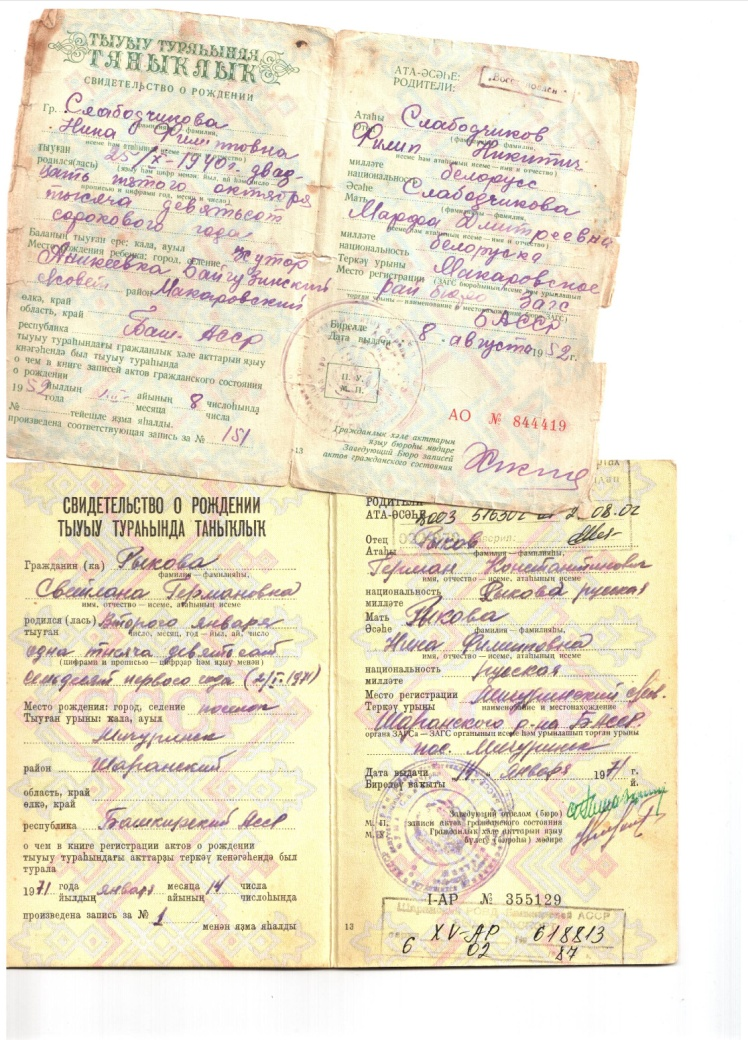 ТЫУЫУ ТУРАҺЫНДА
ТАНЫҠЛЫҠ
СВИДЕТЕЛЬСТВО О РОЖДЕНИИ
Гр. Слабодчикова
фамилияһы, фамилия,
Нина Филиповна
исеме һәм атаһының исеме — имя и отчество)
тыуған
родился(лась) 25/X-1940г. двад-
цать пятого октября
прописью и цифрами год, месяц и число)
тысяча девятьсот
сорокового года
Баланың тыуған ере: ҡала, ауыл
Место рождения ребенка: город, селение хутор
Аникеевка Байгузинский
с/совет район Макаровский
өлкә, край
область, край
республика Баш. АССР
тыуыу тураһындағы гражданлыҡ хәле акттарын яҙыу
кнәгәһендә был тыуыу тураһында
о чем в книге записей актов гражданского состояния
о рождении
1952 йылдың VIII айының 8 числоһында
года месяца числа
№ тейешле яҙма яһалды.
произведена соответствующая запись за № 151
АТА-ӘСӘҺЕ:
РОДИТЕЛИ:
Атаһы
Отец Слабодчиков
(фамилияһы, фамилия,
Филип Никитич
исеме һәм атаһының исеме — имя и отчество)
милләте
национальность белорусс
Әсәһе
Мать Слабодчикова
(фамилияһы — фамилия,
Марфа Дмитреевна
исеме һәм атаһының исеме — имя и отчество)
милләте
национальность белоруска
Теркәү урыны
Место регистрации Макаровское
рай бюро Загс
БАССР
Бирелле
Дата выдачи 8 августа 1952 г.
М. П.
АО № 844419
13
Гражданлыҡ хәле акттарын
яҙыу бюроһы мөдире
Заведующий Бюро записей
актов гражданского состояния
СВИДЕТЕЛЬСТВО О РОЖДЕНИИ
ТЫУЫУ ТУРАҺЫНДА ТАНЫҠЛЫҠ
Гражданин (ка) Рыкова
фамилия — фамилияһы,
Светлана Германовна
имя, отчество — исеме, атаһының исеме
родился (лась) Второго января
тыуған число, месяц, год — йыл, ай, число
одна тысяча девятьсот
(цифрами и прописью — цифрҙар һәм яҙыу менән)
семьдесят первого года (2/I-1971)
Место рождения: город, селение поселок
Тыуған урыны: ҡала, ауыл
Мичуринск
район Шаранский
область, край
өлкә, край
республика Башкирский АССР
о чем в книге регистрации актов о рождении
тыуыу тураһындағы акттарҙы теркәү кенәгәһендә был
турала
1971 года января месяца 14 числа
йылдың айының числоһында
произведена запись за № 1
менән яҙма яһалды
РОДИТЕЛИ
АТА-ӘСӘҺЕ
Отец Рыков
Атаһы фамилия — фамилияһы,
Герман Константинович
имя, отчество — исеме, атаһының исеме
национальность русская
милләте
Мать Рыкова
Әсәһе фамилия — фамилияһы,
Нина Филипповна
имя, отчество — исеме, атаһының исеме
национальность русская
милләте
Место регистрации Мичуринский
Теркәү урыны наименование и местонахождение
Шаранского р-на БАССР
органа ЗАГСа — ЗАГС органының исеме һәм урынлашып торған урыны
пос. Мичуринск
Дата выдачи 14 января 1971 г.
Биреләү ваҡыты й.
Заведующий отделом (бюро)
М. П. записи актов гражданского состояния
М. У. Гражданлыҡ хәле акттарын яҙыу
бүлеге (бюроһы) мөдире
I-АР № 355129
13
XV-АР № 618813
6 02 87